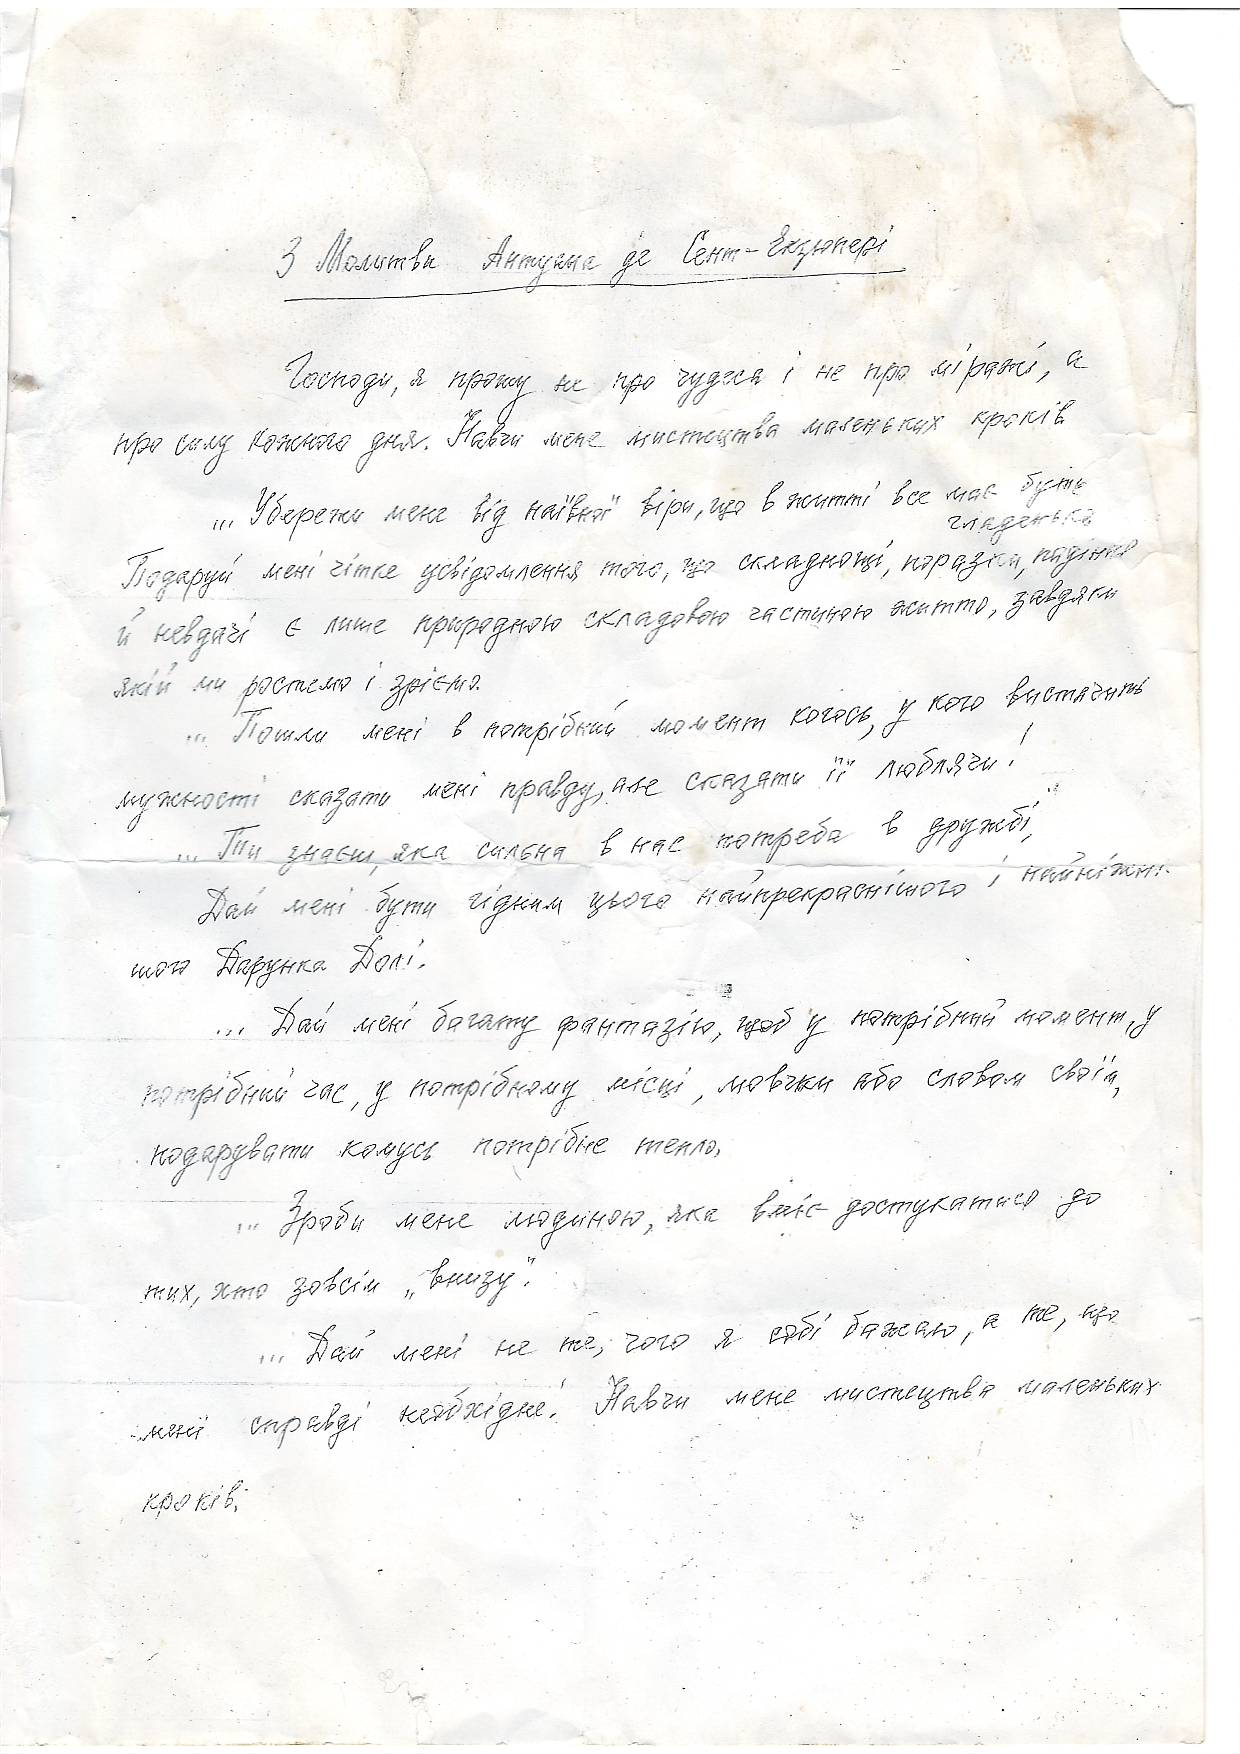 З Молитви Антуана де Сент-Екзюпері
Господи, я прошу не про чудеса і не про міражі, а
про силу кожного дня. Навчи мене мистецтва маленьких кроків
... Убережи мене від наївної віри, що в житті все має буть
гладенько
Подаруй мені чітке усвідомлення того, що складнощі, поразки, падіння
й невдачі є лише природною складовою частиною життя, завдяки
якій ми ростемо і зрієм.
... Пошли мені в потрібний момент когось, у кого вистачить
мужності сказати мені правду, але сказати її люблячи!
... Ти знаєш, яка сильна в нас потреба в дружбі,
Дай мені бути гідним цього найпрекраснішого і найніжні-
шого Дарунка Долі.
... Дай мені багату фантазію, щоб у потрібний момент, у
потрібний час, у потрібному місці, мовчки або словом своїм,
подарувати комусь потрібне тепло.
... Зроби мене людиною, яка вміє достукатися до
тих, хто зовсім „внизу".
... Дай мені не те, чого я собі бажаю, а те, що
мені справді необхідне! Навчи мене мистецтва маленьких
кроків.